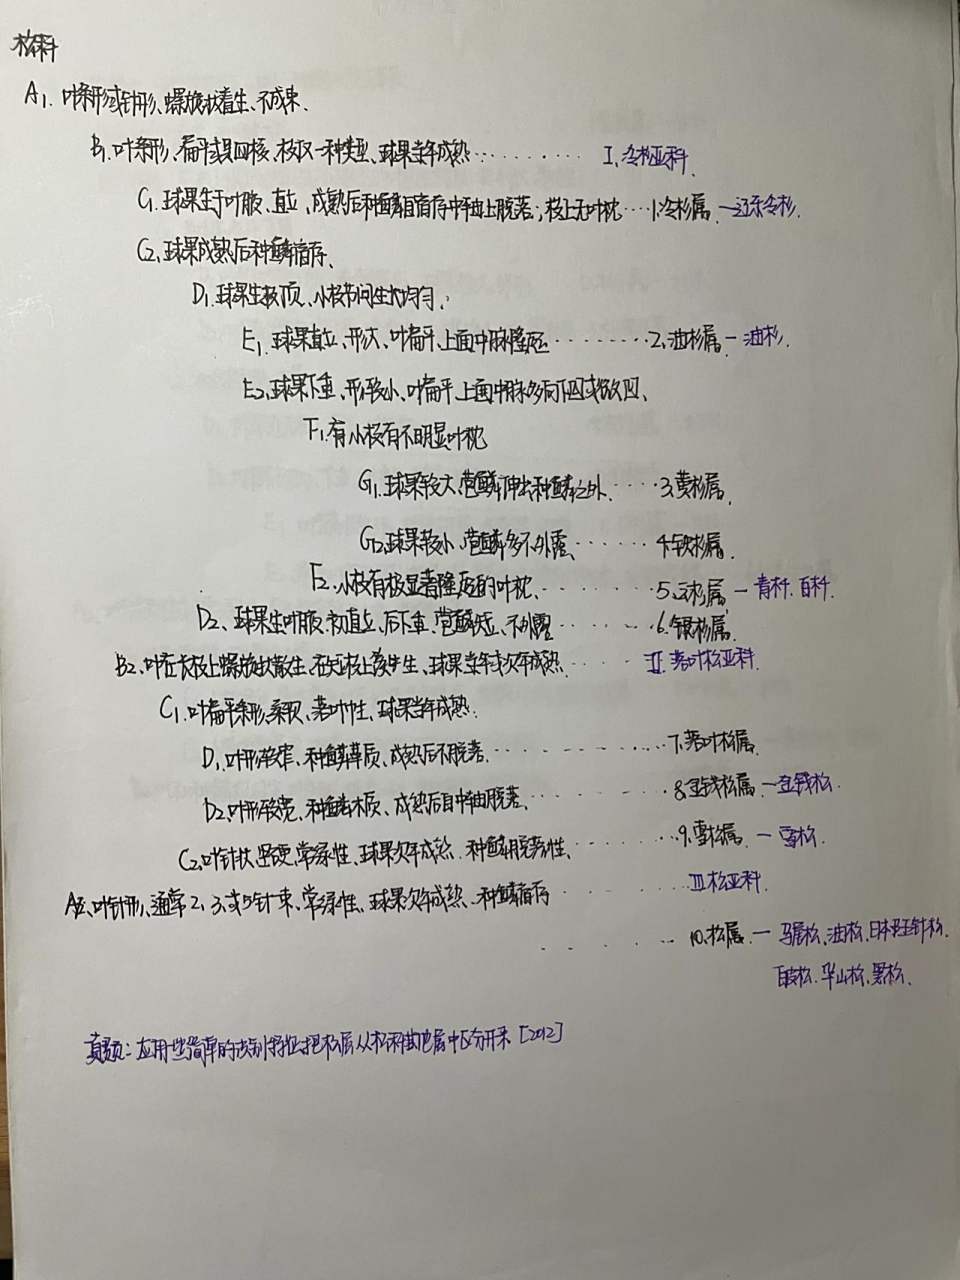 松科
A1. 叶条形或针形、螺旋状着生、不成束.
B1. 叶条形、扁平或具四棱、枝仅一种类型、球果当年成熟......... I. 冷杉亚科
C1. 球果生于叶腋、直立、成熟后种鳞自宿存中轴上脱落;枝上无叶枕....1.冷杉属 —辽东冷杉.
C2. 球果成熟后种鳞宿存、
D1. 球果生枝顶、小枝节间生长均匀.
E1. 球果直立、形大、叶扁平、上面中脉隆起.........2.油杉属 — 油杉.
E2. 球果下垂、形较小、叶扁平、上面中脉多向下凹或微凹、
F1. 有小枝有不明显叶枕
G1. 球果较大、苞鳞伸出种鳞之外.....3.黄杉属.
G2. 球果较小、苞鳞多不外露.......4.铁杉属.
F2. 小枝有极显著隆起的叶枕.......5.云杉属 — 青杄. 白杄.
D2. 球果生叶腋、初直立、后下垂、苞鳞短、不外露.......6.银杉属.
B2. 叶在长枝上螺旋状散生、在短枝上簇生、球果当年或次年成熟..... II. 落叶松亚科.
C1. 叶扁平条形、柔软、落叶性、球果当年成熟.
D1. 叶形较窄、种鳞革质、成熟后不脱落.........7.落叶松属.
D2. 叶形较宽、种鳞木质、成熟后自中轴脱落........8.金钱松属 —金钱松.
C2. 叶针状、坚硬、常绿性、球果次年成熟、种鳞脱落性........9.雪松属 — 雪松.
A2. 叶针形、通常2、3、或5针一束、常绿性、球果次年成熟、种鳞宿存...... III.松亚科.
...... 10.松属 — 马尾松、油松、日本五针松、
白皮松、华山松、黑松.
真题:应用些简单的识别特征把松属从松科其他属中区分开来[2012]